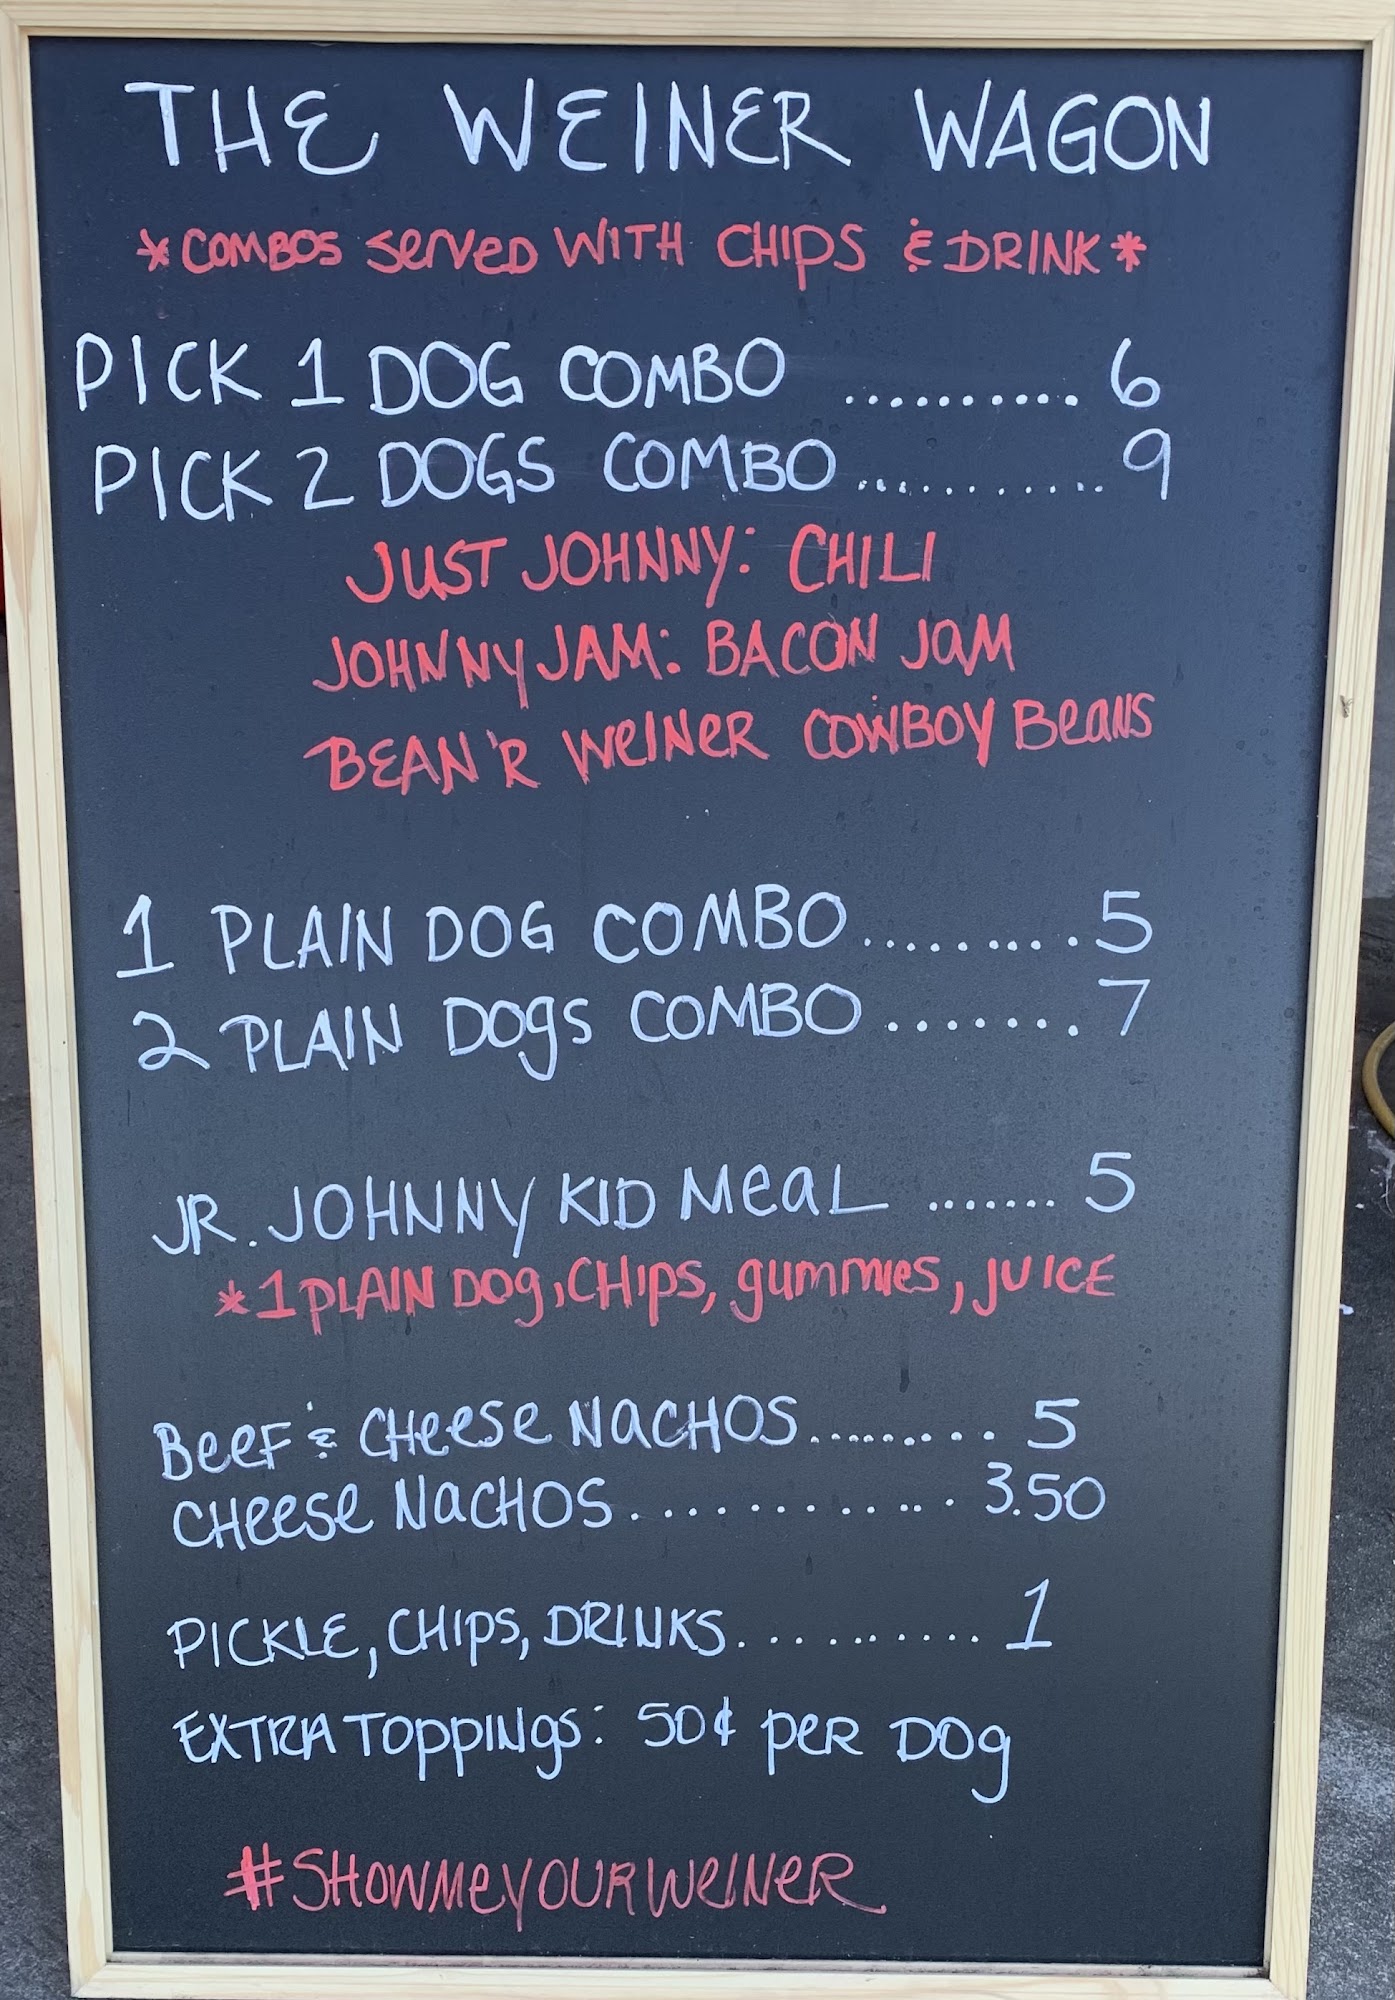 THE WEINER WAGON
*COMBOS SERVED WITH CHIPS & DRINK*
PICK 1 DOG COMBO .......... 6
PICK 2 DOGS COMBO........... 9
JUST JOHNNY: CHILI
JOHNNY JAM: BACON JAM
BEAN 'R WEINER COWBOY BEANS
1 PLAIN DOG COMBO.......... 5
2 PLAIN DOgS COMBO ....... 7
JR. JOHNNY KID MeaL ....... 5
*1 PLAIN DOg, CHIPS, gummies, JUICE
BeeF & CHeese NaCHOS......... 5
CHeese NaCHOS............ 3.50
PICKLE, CHIPS, DRINKS........... 1
EXTRA TOppINgS: 50¢ peR DOg
#SHOWMeYOURWeINeR